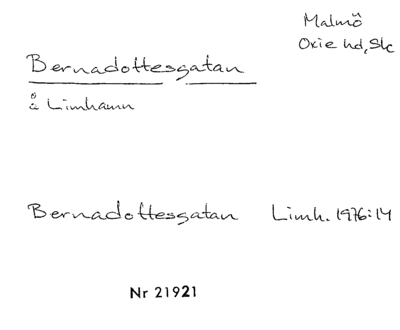 Malmö
Oxie hd, Sk
Bernadottesgatan
å Limhamn
Bernadottesgatan Limh. 1976:14
Nr 21921